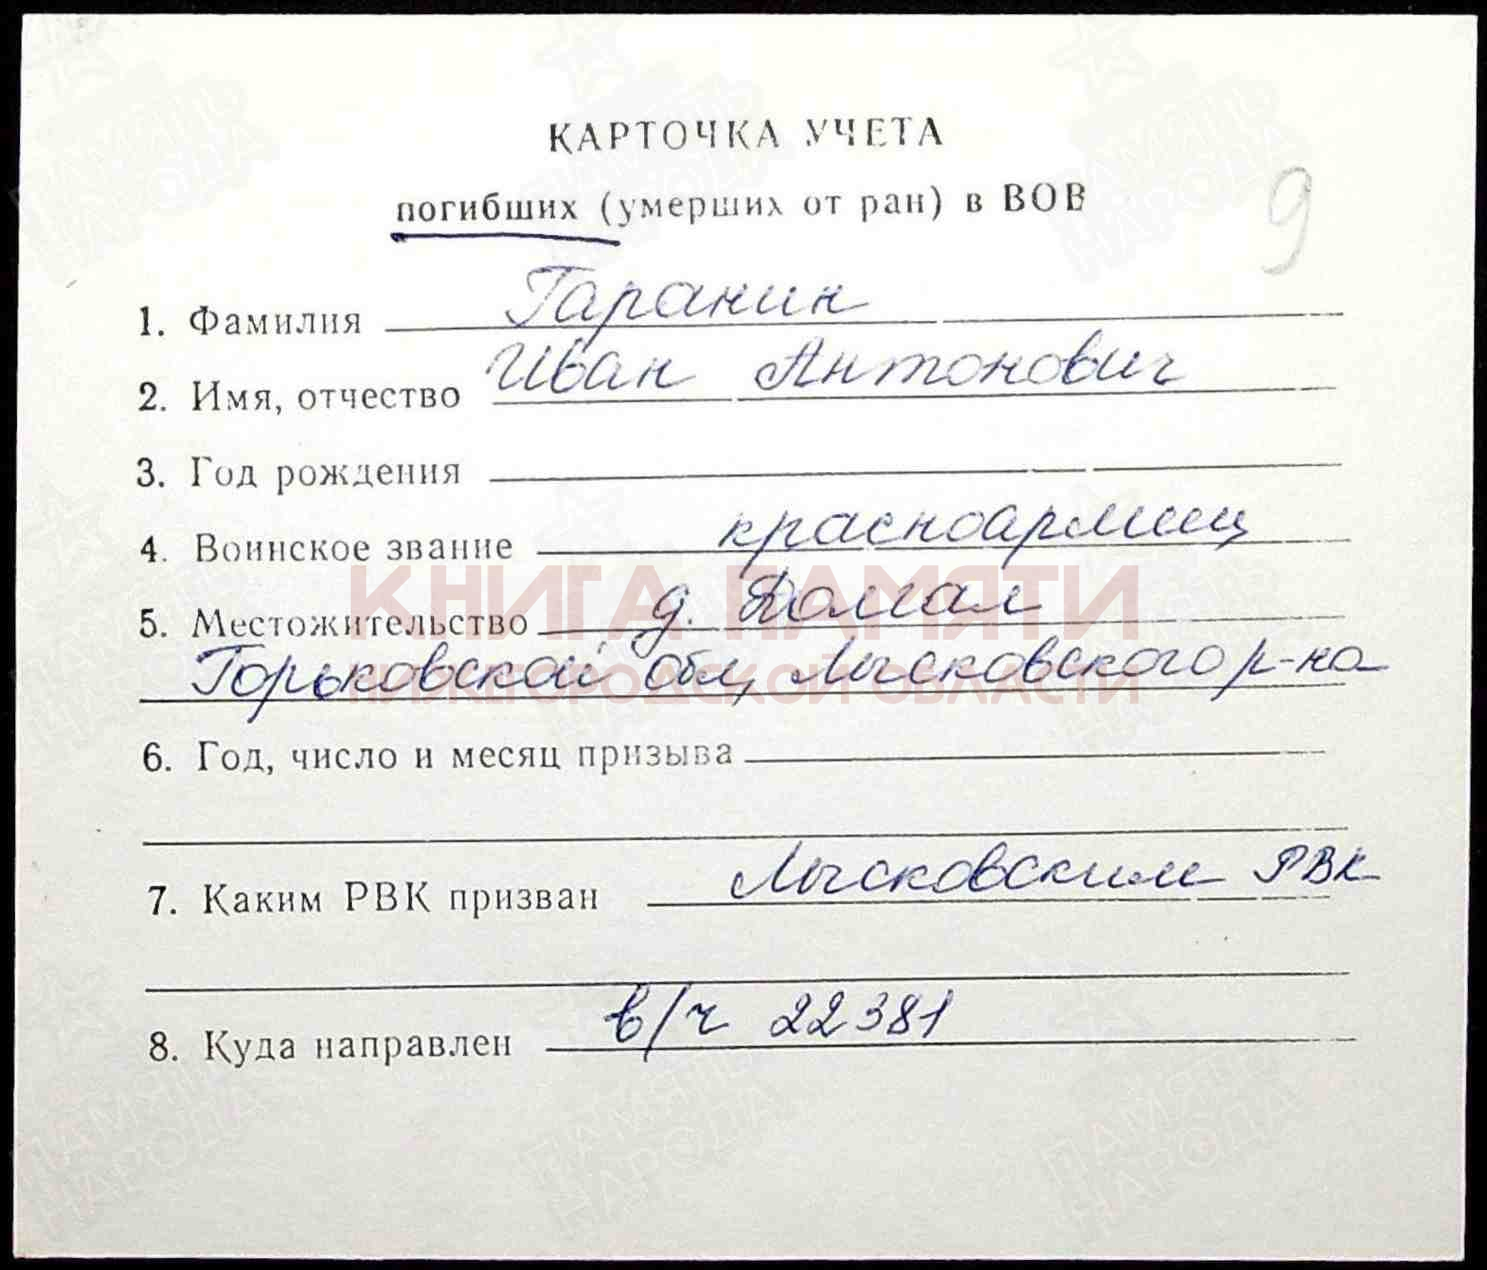 КАРТОЧКА УЧЕТА
погибших (умерших от ран) в ВОВ
9
1. Фамилия Гаранин
2. Имя, отчество Иван Антонович
3. Год рождения
4. Воинское звание красноармеец
5. Местожительство д.
Горьковской обл, Лысковского р-на
КНИГА ПАМЯТИ
НИЖЕГОРОДСКОЙ ОБЛАСТИ
6. Год, число и месяц призыва
7. Каким РВК призван Лысковским РВК
8. Куда направлен в/ч 22381
ПАМЯТЬ НАРОДА